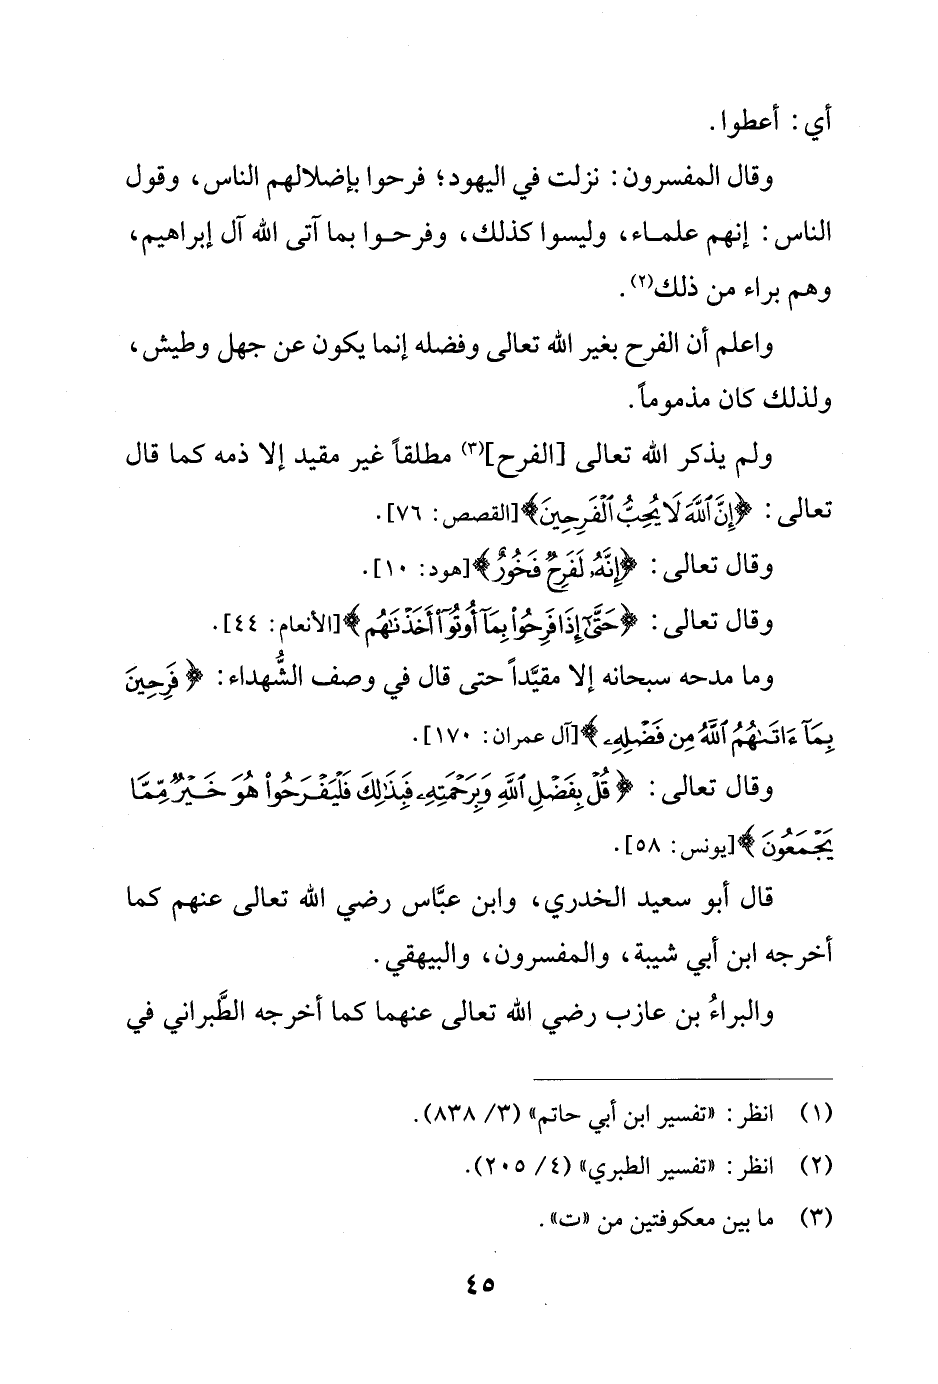 أي: أعطوا.
وقال المفسرون: نزلت في اليهود؛ فرحوا بإضلالهم الناس، وقول
الناس: إنهم علماء، وليسوا كذلك، وفرحوا بما آتى الله آل إبراهيم،
وهم براء من ذلك(٢).
واعلم أن الفرح بغير الله تعالى وفضله إنما يكون عن جهل وطيش،
ولذلك كان مذموماً.
ولم يذكر الله تعالى [الفرح](٣) مطلقاً غير مقيد إلا ذمه كما قال
تعالى: ﴿إِنَّ ٱللَّهَ لَا يُحِبُّ ٱلْفَرِحِينَ﴾[القصص: ٧٦].
وقال تعالى: ﴿إِنَّهُۥ لَفَرِحٌ فَخُورٌ﴾[هود: ١٠].
وقال تعالى: ﴿حَتَّىٰٓ إِذَا فَرِحُوا۟ بِمَآ أُوتُوٓا۟ أَخَذْنَٰهُم﴾[الأنعام: ٤٤].
وما مدحه سبحانه إلا مقيَّداً حتى قال في وصف الشُّهداء: ﴿فَرِحِينَ
بِمَآ ءَاتَىٰهُمُ ٱللَّهُ مِن فَضْلِهِۦ﴾[آل عمران: ١٧٠].
وقال تعالى: ﴿قُلْ بِفَضْلِ ٱللَّهِ وَبِرَحْمَتِهِۦ فَبِذَٰلِكَ فَلْيَفْرَحُوا۟ هُوَ خَيْرٌ مِّمَّا
يَجْمَعُونَ﴾[يونس: ٥٨].
قال أبو سعيد الخدري، وابن عبَّاس رضي الله تعالى عنهم كما
أخرجه ابن أبي شيبة، والمفسرون، والبيهقي.
والبراءُ بن عازب رضي الله تعالى عنهما كما أخرجه الطَّبراني في
(١) انظر: «تفسير ابن أبي حاتم» (٣/ ٨٣٨).
(٢) انظر: «تفسير الطبري» (٤/ ٢٠٥).
(٣) ما بين معكوفتين من «ت».
٤٥